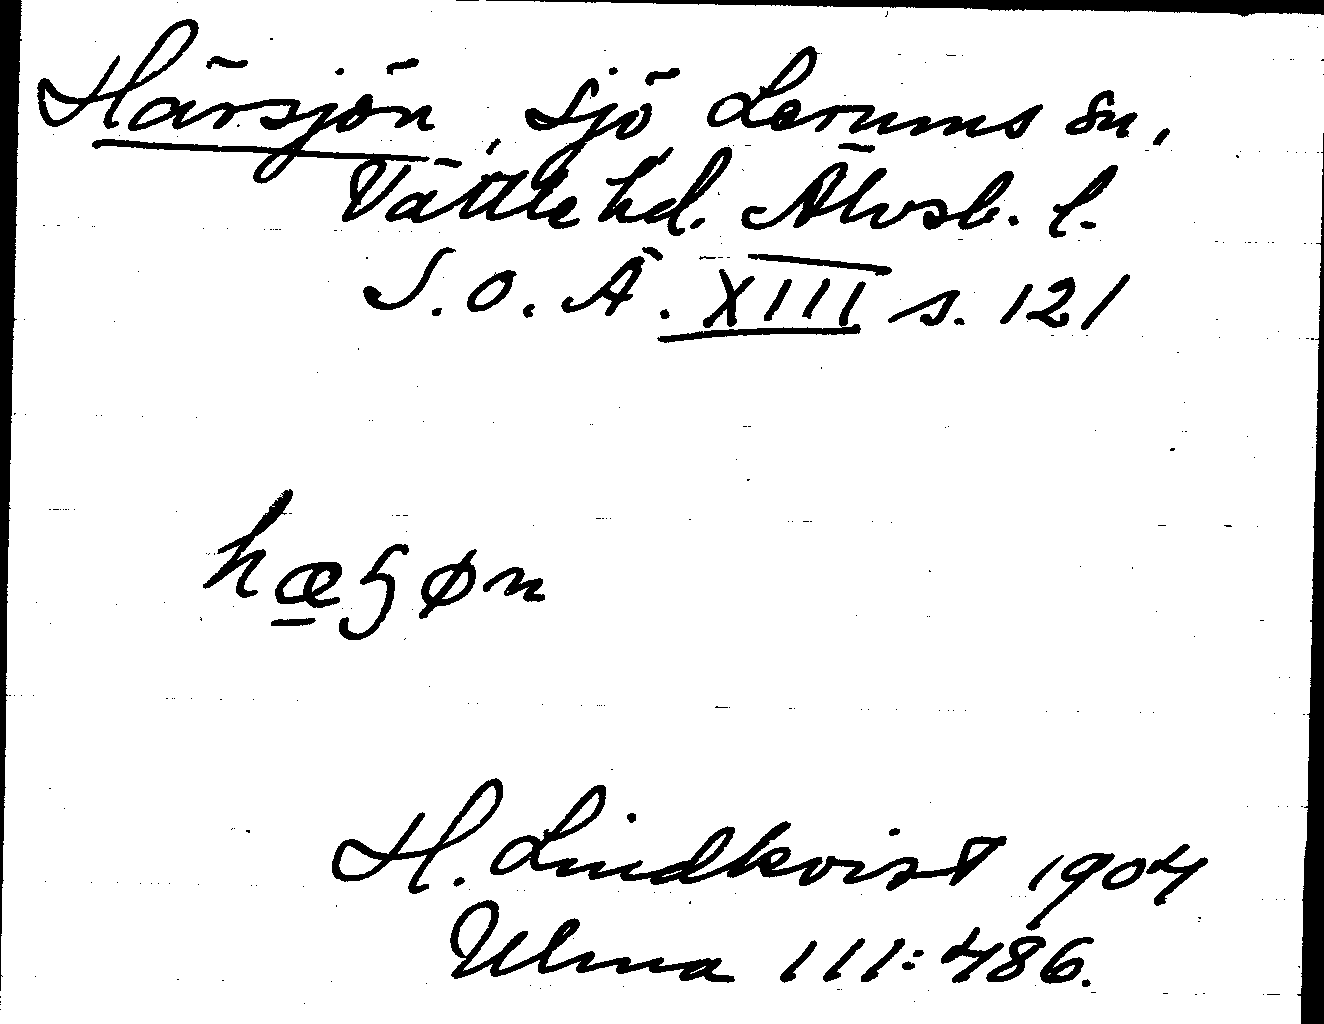 Härsjön, sjö Lerums sn,
Vättle hd. Älvsb. l.
S.O.Ä. XIII s. 121
hæʒøn
H. Lindkvist 1904
Ulma 111:486.